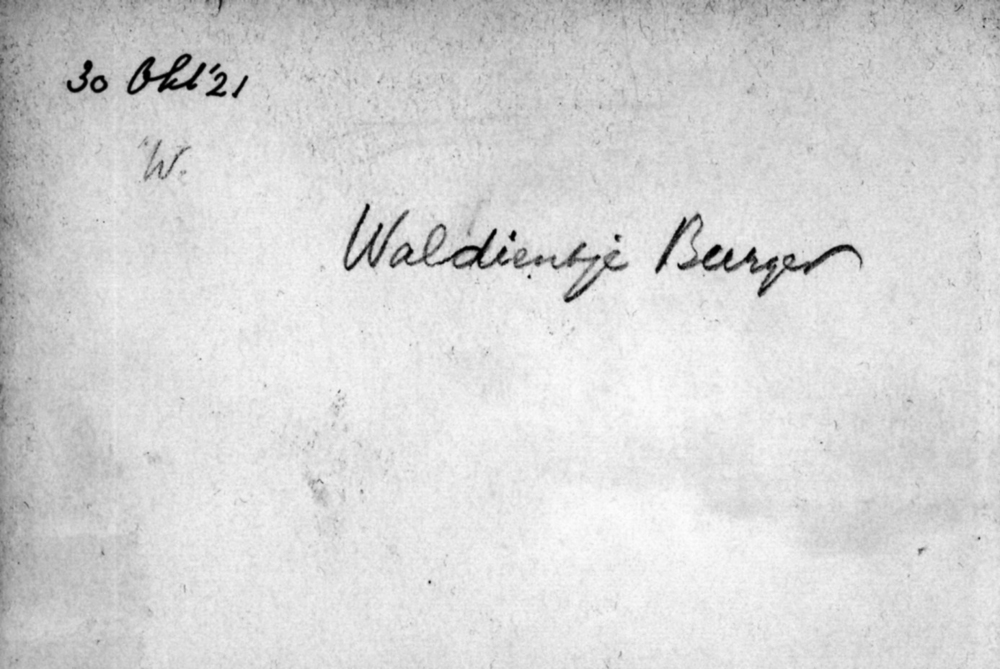 30 Okt '21
W.
Waldientje Burger